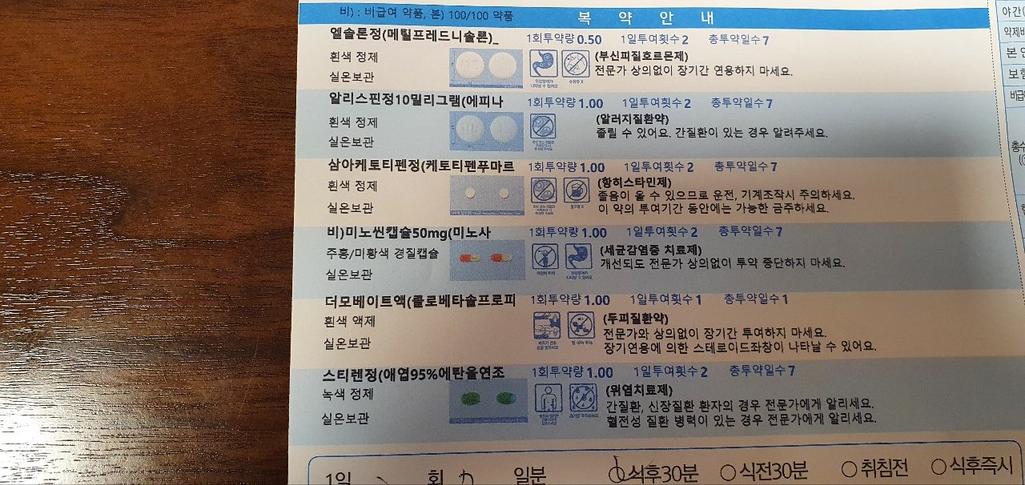 비) : 비급여 약품, 본) 100/100 약품
복 약 안 내
엘솔론정(메틸프레드니솔론)_ 1회투약량 0.50 1일투여횟수 2 총투약일수 7
흰색 정제 (부신피질호르몬제)
실온보관 전문가 상의없이 장기간 연용하지 마세요.
알리스핀정10밀리그램(에피나 1회투약량 1.00 1일투여횟수 2 총투약일수 7
흰색 정제 (알러지질환약)
실온보관 졸릴 수 있어요. 간질환이 있는 경우 알려주세요.
삼아케토티펜정(케토티펜푸마르 1회투약량 1.00 1일투여횟수 2 총투약일수 7
흰색 정제 (항히스타민제)
졸음이 올 수 있으므로 운전, 기계조작시 주의하세요.
실온보관 이 약의 투여기간 동안에는 가능한 금주하세요.
비)미노씬캡슐50mg(미노사 1회투약량 1.00 1일투여횟수 2 총투약일수 7
주홍/미황색 경질캡슐 (세균감염증 치료제)
실온보관 개선되도 전문가 상의없이 투약 중단하지 마세요.
더모베이트액(클로베타솔프로피 1회투약량 1.00 1일투여횟수 1 총투약일수 1
흰색 액제 (두피질환약)
전문가와 상의없이 장기간 투여하지 마세요.
실온보관 장기연용에 의한 스테로이드좌창이 나타날 수 있어요.
스티렌정(애엽95%에탄올연조 1회투약량 1.00 1일투여횟수 2 총투약일수 7
녹색 정제 (위염치료제)
간질환, 신장질환 환자의 경우 전문가에게 알리세요.
실온보관 혈전성 질환 병력이 있는 경우 전문가에게 알리세요.
1일 회 일분 식후30분 식전30분 취침전 식후즉시
야간
약제비
본인
보험
비급
총수